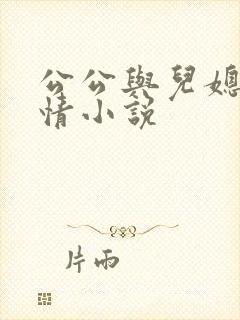 公公與兒媳
情小說
片雨